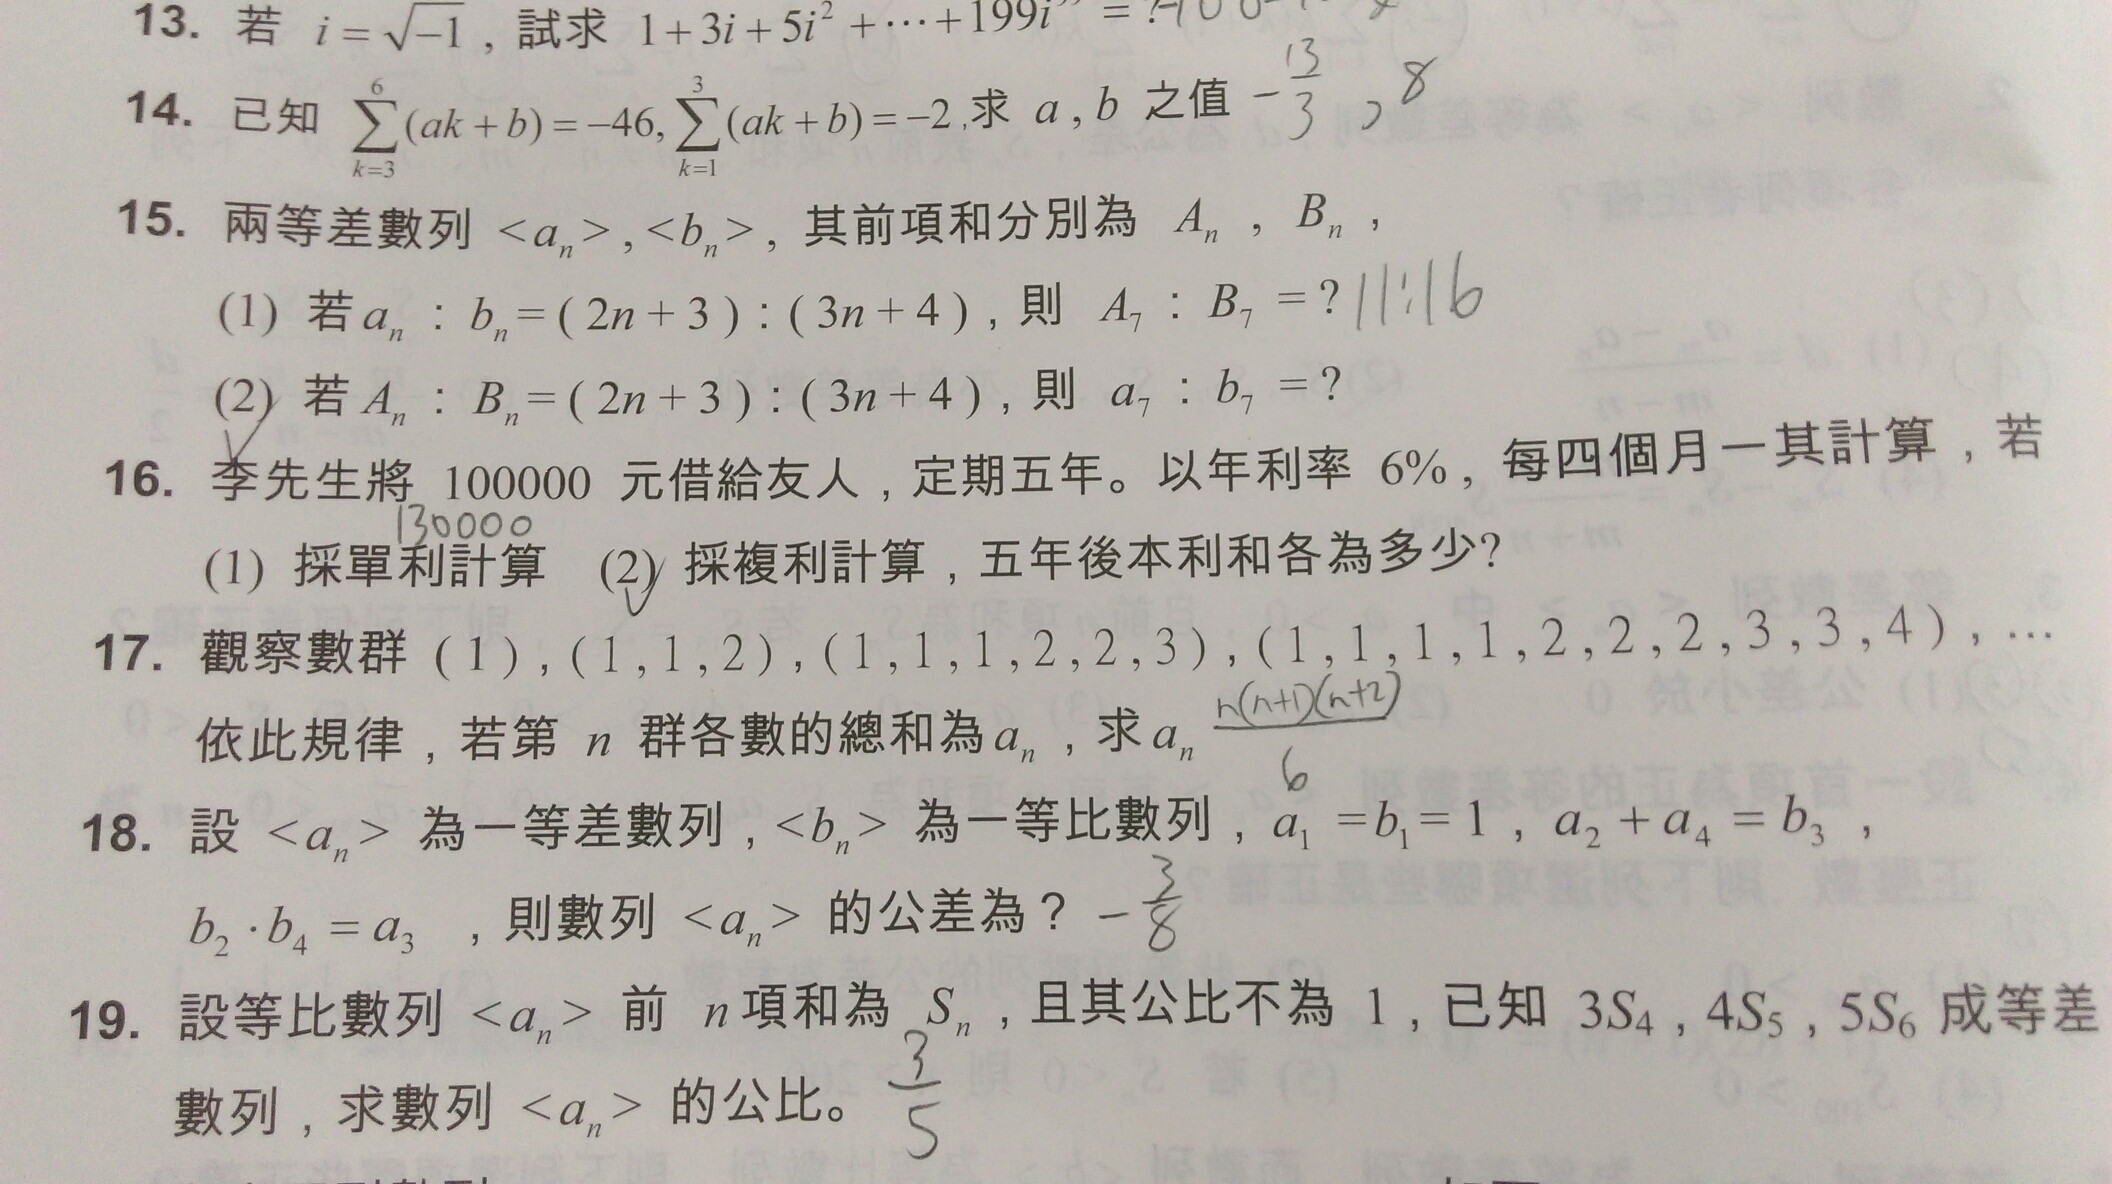 13. 若 i = √-1 , 試求 1+3i+5i²+⋯+199i⁹⁹ = ?
14. 已知 ∑_{k=3}^{6}(ak+b)=-46, ∑_{k=1}^{3}(ak+b)=-2 ,求 a , b 之值 -13/3 , 8
15. 兩等差數列 <aₙ> , <bₙ> , 其前項和分別為 Aₙ , Bₙ ,
(1) 若 aₙ : bₙ = ( 2n + 3 ) : ( 3n + 4 ) , 則 A₇ : B₇ = ? 11:16
(2) 若 Aₙ : Bₙ = ( 2n + 3 ) : ( 3n + 4 ) , 則 a₇ : b₇ = ?
16. 李先生將 100000 元借給友人 , 定期五年。以年利率 6% , 每四個月一其計算 , 若
130000
(1) 採單利計算 (2) 採複利計算 , 五年後本利和各為多少?
17. 觀察數群 ( 1 ) , ( 1 , 1 , 2 ) , ( 1 , 1 , 1 , 2 , 2 , 3 ) , ( 1 , 1 , 1 , 1 , 2 , 2 , 2 , 3 , 3 , 4 ) , …
依此規律 , 若第 n 群各數的總和為 aₙ , 求 aₙ n(n+1)(n+2)/6
18. 設 <aₙ> 為一等差數列 , <bₙ> 為一等比數列 , a₁ = b₁ = 1 , a₂ + a₄ = b₃ ,
b₂ · b₄ = a₃ , 則數列 <aₙ> 的公差為 ? -3/8
19. 設等比數列 <aₙ> 前 n 項和為 Sₙ , 且其公比不為 1 , 已知 3S₄ , 4S₅ , 5S₆ 成等差
數列 , 求數列 <aₙ> 的公比。 3/5